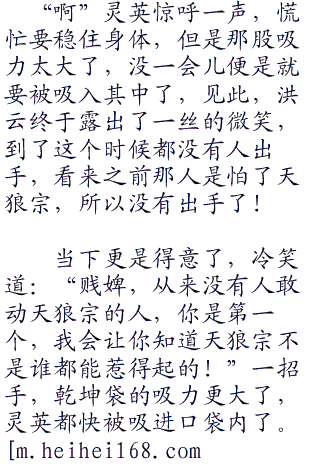 “啊”灵英惊呼一声，慌
忙要稳住身体，但是那股吸
力太大了，没一会儿便是就
要被吸入其中了，见此，洪
云终于露出了一丝的微笑，
到了这个时候都没有人出
手，看来之前那人是怕了天
狼宗，所以没有出手了！
当下更是得意了，冷笑
道：“贱婢，从来没有人敢
动天狼宗的人，你是第一
个，我会让你知道天狼宗不
是谁都能惹得起的！”一招
手，乾坤袋的吸力更大了，
灵英都快被吸进口袋内了。
[m.heihei168.com